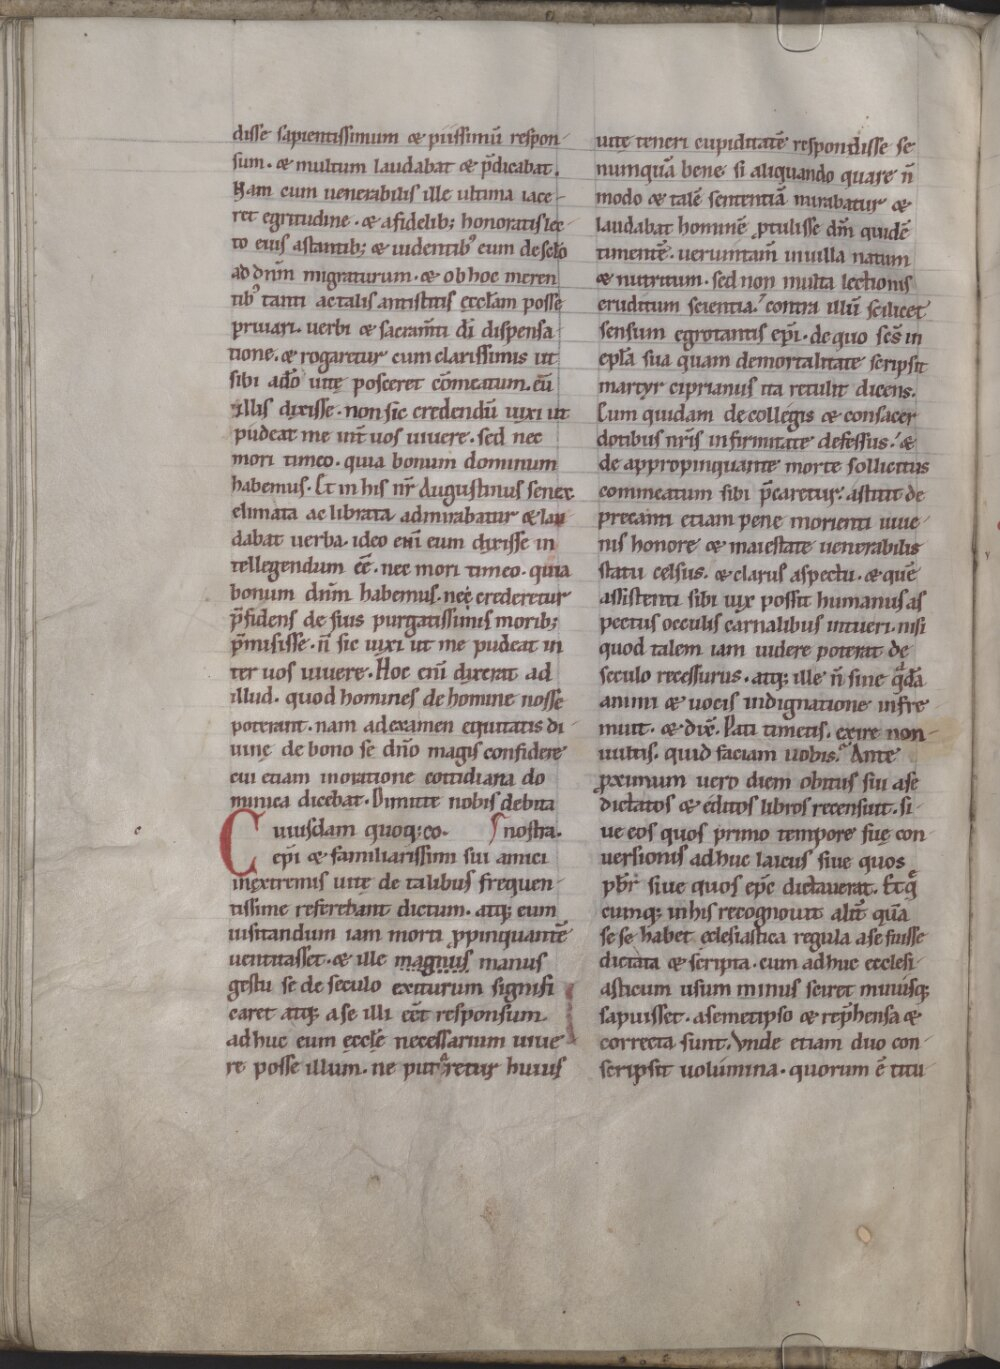 disse sapientissimum & piissimū respon-
sum. & multum laudabat & p̄dicabat.
Nam cum uenerabilis ille ultima iace-
ret egritudine. & afidelib; honoratis lec-
to eius astantib; & uidentib' eum desclo
ad dnm̄ migraturum. & ob hoc meren
tib' tanti ac talis antistitis eccl̄am posse
priuari. uerbi & sacram̄ti dī dispensa-
tione. & rogaretur cum clarissimis ut
sibi adō uitę posceret cōmeatum. eū
illis dixisse. non sic credendū uixi ut
pudeat me int̄ uos uiuere. sed nec
mori timeo. quia bonum dominum
habemus. Et in his nr̄ augustinus senex
elimata ac librata admirabatur & lau
dabat uerba. ideo eni̅ eum dixisse in
tellegendum eē. nec mori timeo. quia
bonum dnm̄ habemus. nec crederetur
p̄fidens de suis purgatissimis morib;
p̄misisse. n̄ sic uixi ut me pudeat in
ter uos uiuere. Hoc eni̅ dixerat ad
illud. quod homines de homine nosse
poterant. nam ad examen equitatis di-
uinę de bono se dn̄o magis confidere
cui etiam inoratione cottidiana do
minica dicebat. Dimitte nobis debita
Cuiusdam quoq; co- nostra.
epī & familiarissimi sui amici
inextremis uitę de talibus frequen-
tissime referebant dictum. atq; eum
uisitandum iam morti p̱pinquantē
uentitasset. & ille magnus manus
gestu se de seculo exiturum signifi
caret atq; a se illi eēt responsum.
adhuc eum ęcclę necessarium uiue-
re posse illum. ne putaretur huius
uite teneri cupiditatē respondisse se
numquā bene. si aliquando quare n̄
modo & talē sententiā mirabatur &
laudabat hominē p̱tulisse dm̄ quidē
timentē. ueruntam̄ inuilla natum
& nutritum. sed non multa lectionis
eruditum scientia. contra illū scilicet
sensum egrotantis epī. de quo scs̄ in
eplā sua quam demortalitate scripsit
martyr ciprianus ita retulit dicens.
Cum quidam de collegis & consacer
dotibus nr̄is infirmitate defessus. &
de appropinquante morte sollicitus
commeatum sibi p̄caretur. astitit de
precanti etiam pene morienti iuue-
nis honore & maiestate uenerabilis
statu celsus. & clarus aspectu. & quē
assistenti sibi uix possit humanus as
pectus occulis carnalibus intueri. nisi
quod talem iam uidere poterat de
seculo recessurus. atq; ille n̄ sine qdā
animi & uocis indignatione infre
muit. & dix̄. Pati timetis. exire non-
uultis. quid faciam uobis. Ante
p̱ximum uero diem obitus sui a se
dictatos & editos libros recensuit. si-
ue eos quos primo tempore suę con
uersionis adhuc laicus siue quos
pbr̄ siue quos epc̄ dictauerat. Et q
cumq; in his recognouit alit̄ quā
se se habet ecclesiastica regula a se fuisse
dictata & scripta. cum adhuc ecclesi-
asticum usum minus sciret minusq;
sapuisset. asemetipso & rep̄hensa &
correcta sunt. Vnde etiam duo con-
scripsit uolumina. quorum ē titu